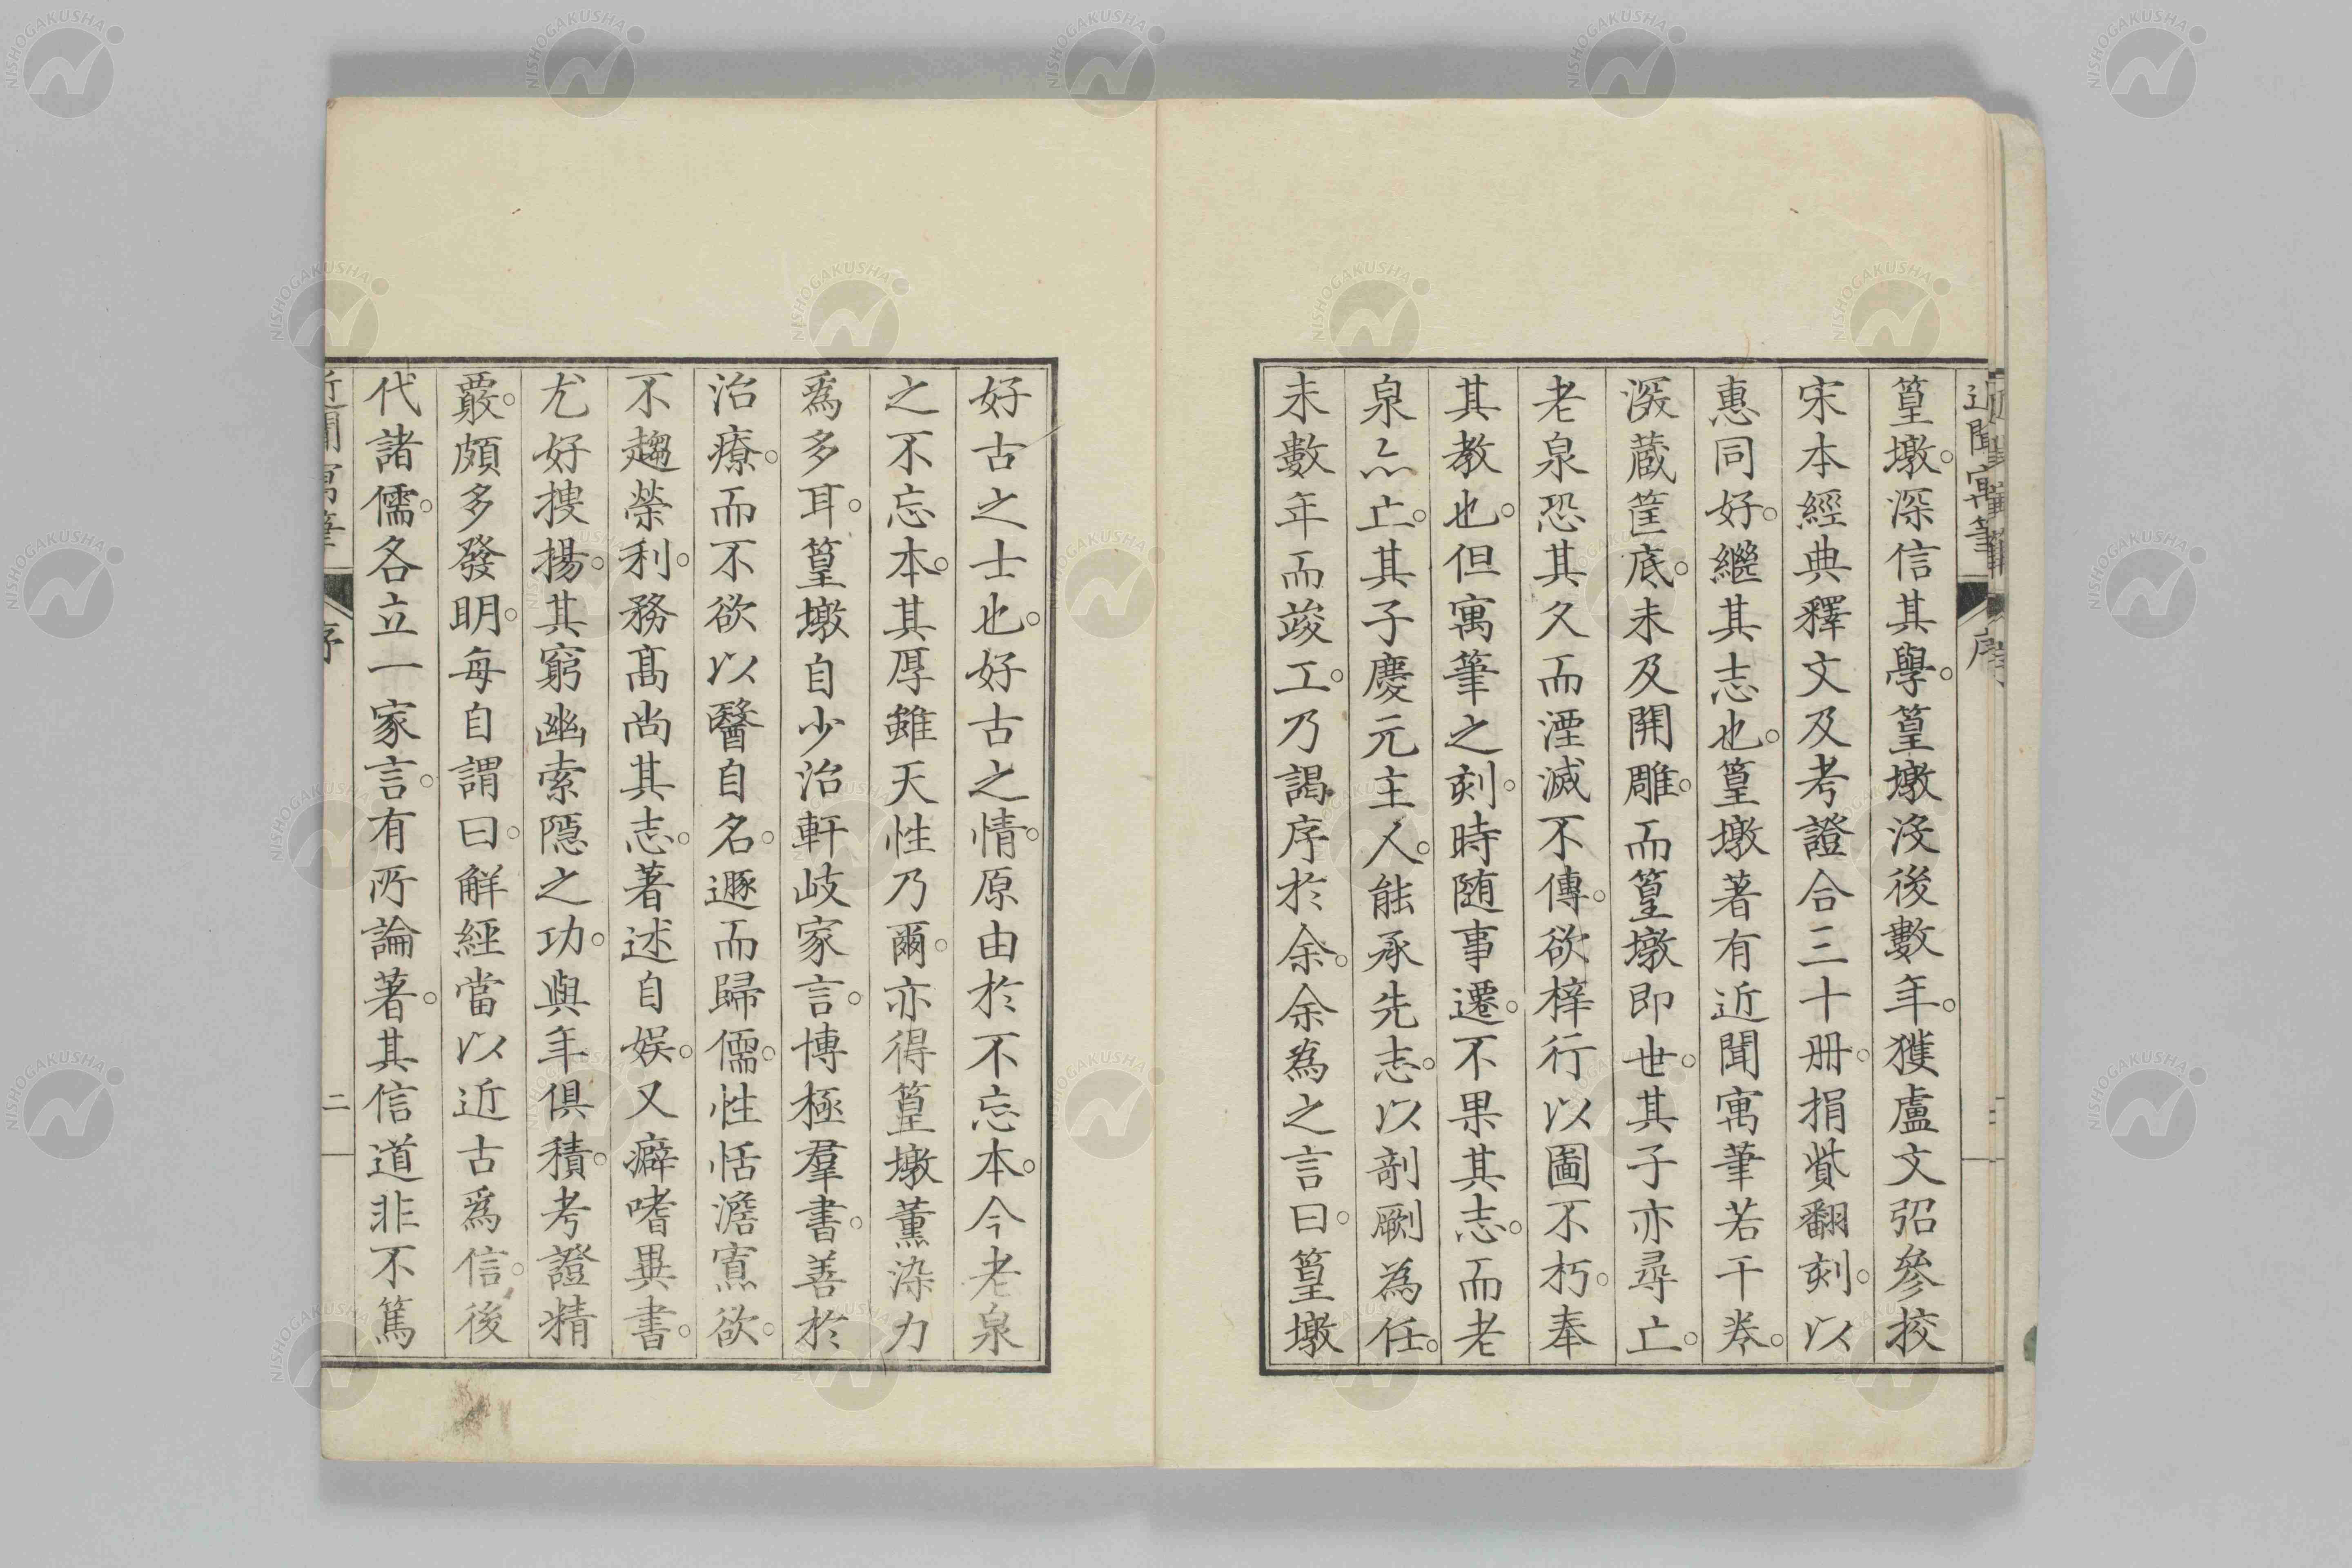 近聞寓筆
序
篁墩。深信其學。篁墩沒後數年。獲盧文弨參校
宋本經典釋文及考證合三十冊。捐貲翻刻。以
惠同好。繼其志也。篁墩著有近聞寓筆若干卷。
深蔵筐底。未及開雕。而篁墩即世。其子亦尋亡。
老泉恐其久而湮滅不傳。欲梓行以圖不朽。奉
其教也。但寓筆之刻。時随事遷。不果其志。而老
泉亦止。其子慶元主人。能承先志。以剞劂為任。
未數年而竣工。乃謁序於余。余為之言曰。篁墩
好古之士也。好古之情。原由於不忘本。今老泉
之不忘本。其厚雖天性乃爾。亦得篁墩薫染力
爲多耳。篁墩自少治軒岐家言。博極羣書。善於
治療。而不欲以醫自名。遯而歸儒。性恬澹寡欲。
不趨榮利。務髙尚其志。著述自娯。又癖嗜異書。
尤好捜揚。其窮幽索隱之功。與年俱積。考證精
覈。頗多發明。每自謂曰。解經當以近古爲信。後
代諸儒。各立一家言。有所論著。其信道非不篤
近聞寓筆
序
二
NISHOGAKUSHA